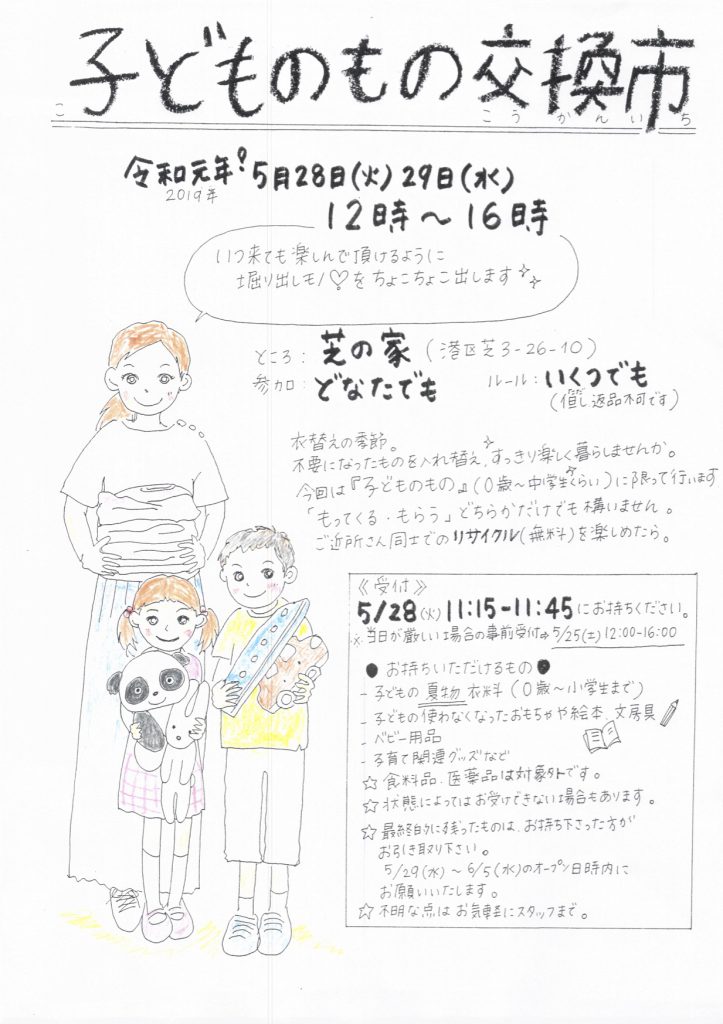 子どものもの交換市
こ こうかんいち
令和元年！5月28日(火)29日(水)
2019年
12時～16時
いつ来ても楽しんで頂けるように
堀り出しモノ♡をちょこちょこ出します
ところ：芝の家（港区芝3-26-10）
参加：どなたでも ルール：いくつでも
（但し返品不可です）
ただ
衣替えの季節。
不要になったものを入れ替え、すっきり楽しく暮らしませんか。
今回は『子どものもの』（0歳～中学生くらい）に限って行います
「もってくる・もらう」どちらかだけでも構いません。
ご近所さん同士でのリサイクル(無料)を楽しめたら。
《受付》
5/28(火)11:15-11:45にお持ちください。
※当日が厳しい場合の事前受付⇒5/25(土)12:00-16:00
●お持ちいただけるもの●
-子どもの夏物衣料（0歳～小学生まで）
-子どもの使わなくなったおもちゃや絵本、文房具
-ベビー用品
-子育て関連グッズなど
☆食料品、医薬品は対象外です。
☆状態によってはお受けできない場合もあります。
☆最終日外に残ったものは、お持ち下さった方が
お引き取り下さい。
5/29(水)～6/5(水)のオープン日時内に
お願いいたします。
☆不明な点はお気軽にスタッフまで。